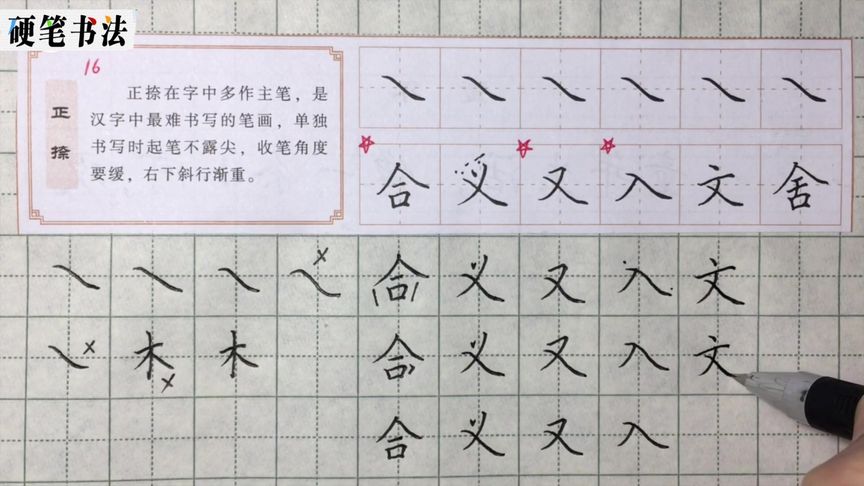 硬笔书法
16
正捺
正捺在字中多作主笔，是
汉字中最难书写的笔画，单独
书写时起笔不露尖，收笔角度
要缓，右下斜行渐重。
㇏ ㇏ ㇏ ㇏ ㇏ ㇏
合 义 又 入 文 舍
㇏ ㇏ ㇏ ㇏ 合 义 又 入 文
㇏ 木 木 合 义 又 入 文
合 义 又 入